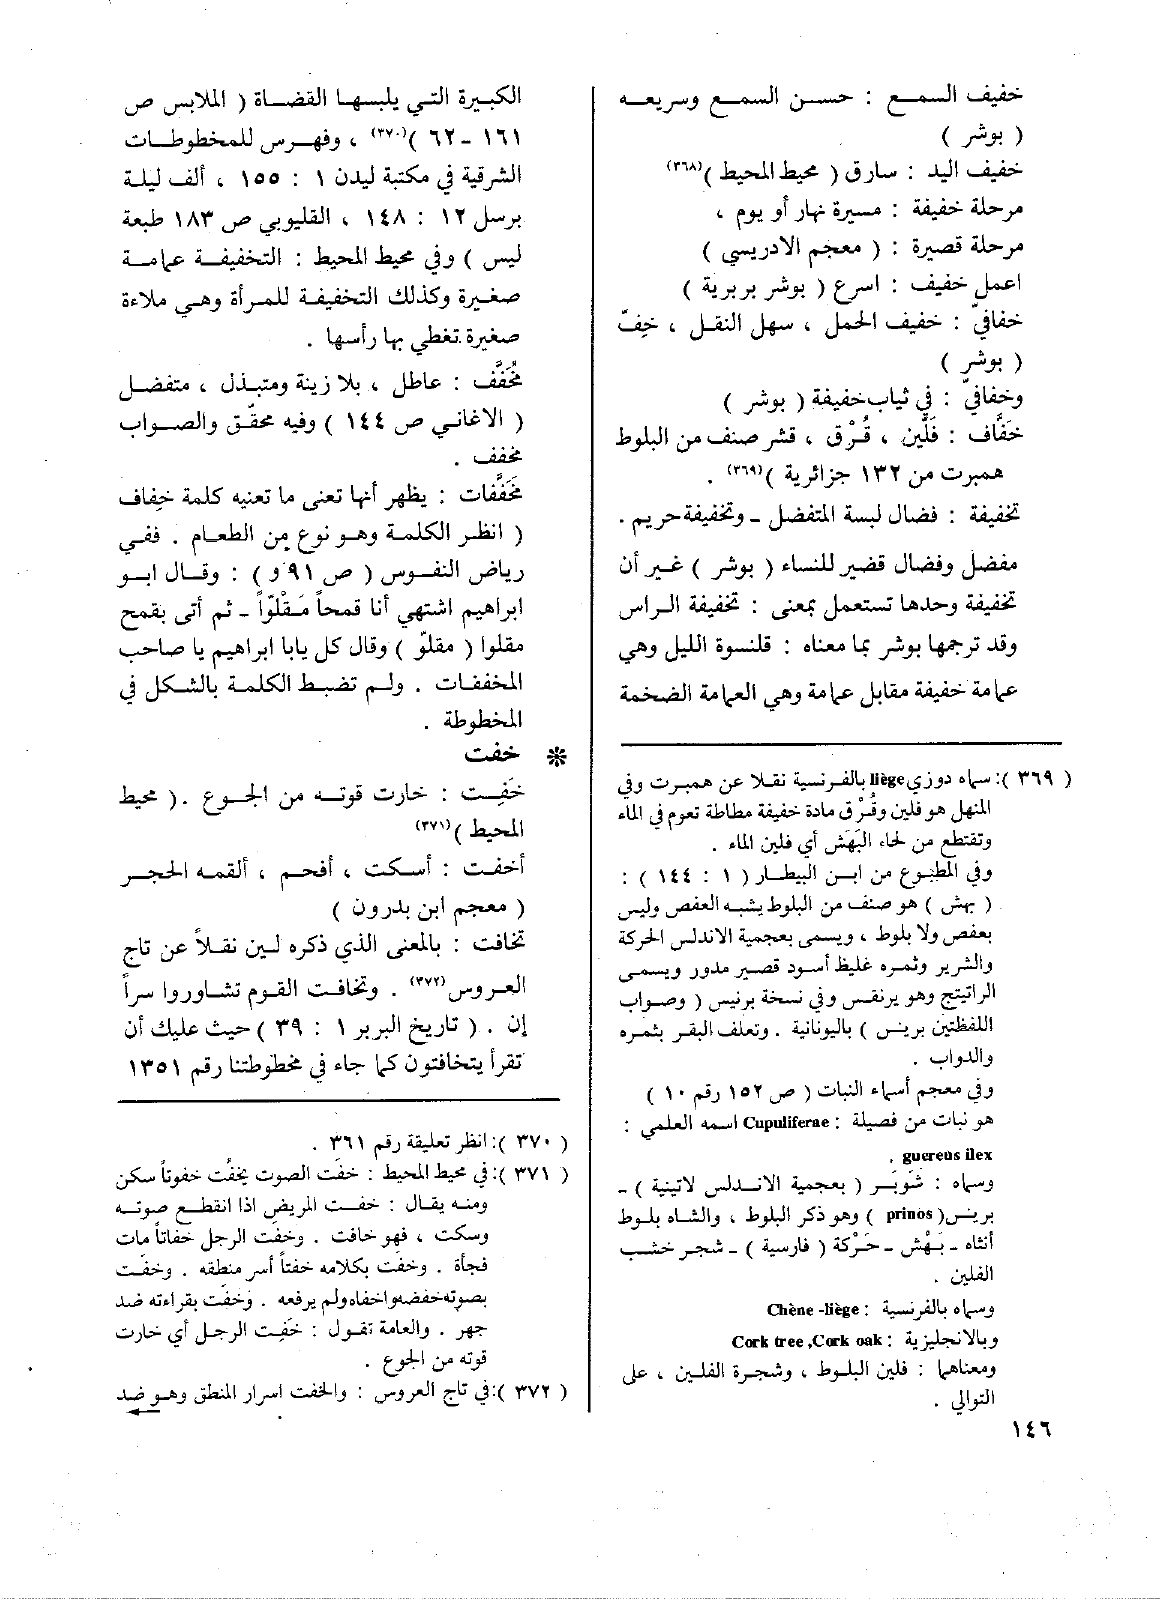 خفيف السمع : حسن السمع وسريعه
( بوشر )
خفيف اليد : سارق ( محيط المحيط )(٣٦٨)
مرحلة خفيفة : مسيرة نهار أو يوم ،
مرحلة قصيرة : ( معجم الادريسي )
اعمل خفيف : اسرع ( بوشر بربرية )
خفافيّ : خفيف الحمل ، سهل النقل ، خِفّ
( بوشر )
وخفافيّ : في ثياب خفيفة ( بوشر )
خَفَّاف : فلّين ، قُرْق ، قشر صنف من البلوط
همبرت من ١٣٢ جزائرية )(٣٦٩) .
تخفيفة : فضال لبسة المتفضل ـ وتخفيفة حريم .
مفضل وفضال قضير للنساء ( بوشر ) غير أن
تخفيفة وحدها تستعمل بمعنى : تخفيفة الراس
وقد ترجمها بوشر بما معناه : قلنسوة الليل وهي
عمامة خفيفة مقابل عمامة وهي العمامة الضخمة
( ٣٦٩ ): سماه دوزي liège بالفرنسية نقلا عن همبرت وفي
المنهل هو فلين وقُرْق مادة خفيفة مطاطة تعوم في الماء
وتقتطع من لحاء البَهَش أي فلين الماء .
وفي المطبوع من ابن البيطار ( ١ : ١٤٤ ) :
( بهش ) هو صنف من البلوط يشبه العفص وليس
بعفص ولا بلوط ، ويسمى بعجمية الاندلس الحركة
والشرير وثمره غليظ أسود قصير مدور ويسمى
الراتينج وهو يرنقس وفي نسخة برنيس ( وصواب
اللفظتين برينس ) باليونانية . وتعلف البقر بثمره
والدواب .
وفي معجم أسماء النبات ( ص ١٥٢ رقم ١٠ )
هو نبات من فصيلة : Cupuliferae اسمه العلمي :
guereus ilex .
وسماه : شَوبَر ( بعجمية الاندلس لاتينية ) ـ
برينس ( prinos ) وهو ذكر البلوط ، والشاه بلوط
أنثاه ـ بَهْش ـ حَرْكة ( فارسية ) ـ شجر خشب
الفلين .
وسماه بالفرنسية : Chène -liège
وبالانجليزية : Cork tree ,Cork oak
ومعناهما : فلين البلوط ، وشجرة الفلين ، على
التوالي .
١٤٦
الكبيرة التي يلبسها القضاة ( الملابس ص
١٦١ ـ ٦٢ )(٣٧٠) ، وفهرس للمخطوطات
الشرقية في مكتبة ليدن ١ : ١٥٥ ، ألف ليلة
برسل ١٢ : ١٤٨ ، القليوبي ص ١٨٣ طبعة
ليس ) وفي محيط المحيط : التخفيفة عمامة
صغيرة وكذلك التخفيفة للمرأة وهي ملاءة
صغيرة تغطي بها رأسها .
مُخَفَّف : عاطل ، بلا زينة ومتبذل ، متفضل
( الاغاني ص ١٤٤ ) وفيه محقّق والصواب
مخفف .
مُخَفَّفات : يظهر أنها تعنى ما تعنيه كلمة خِفاف
( انظر الكلمة وهو نوع من الطعام . ففي
رياض النفوس ( ص ٩١ و ) : وقال ابو
ابراهيم اشتهي أنا قمحاً مَقْلُوّاً ـ ثم أتى بقمح
مقلوا ( مقلوّ ) وقال كل يابا ابراهيم يا صاحب
المخففات . ولم تضبط الكلمة بالشكل في
المخطوطة .
❊ خفت
خَفِت : خارت قوته من الجوع . ( محيط
المحيط )(٣٧١)
أخفت : أسكت ، أفحم ، ألقمه الحجر
( معجم ابن بدرون )
تخافت : بالمعنى الذي ذكره لين نقلاً عن تاج
العروس(٣٧٢) . وتخافت القوم تشاوروا سراً
إن . ( تاريخ البربر ١ : ٣٩ ) حيث عليك أن
تقرأ يتخافتون كما جاء في مخطوطتنا رقم ١٣٥١
( ٣٧٠ ): انظر تعليقة رقم ٣٦١ .
( ٣٧١ ): في محيط المحيط : خفَت الصوت يخفُت خفوتاً سكن
ومنه يقال : خفت المريض اذا انقطع صوته
وسكت ، فهو خافت . وخفَت الرجل خفاتاً مات
فجأة . وخفَت بكلامه خفتاً أسر منطقه . وخفَت
بصوته خفضه واخفاه ولم يرفعه . وخفَت بقراءته ضد
جهر . والعامة تقول : خَفِت الرجل أي خارت
قوته من الجوع .
( ٣٧٢ ): في تاج العروس : والخفت اسرار المنطق وهو ضد